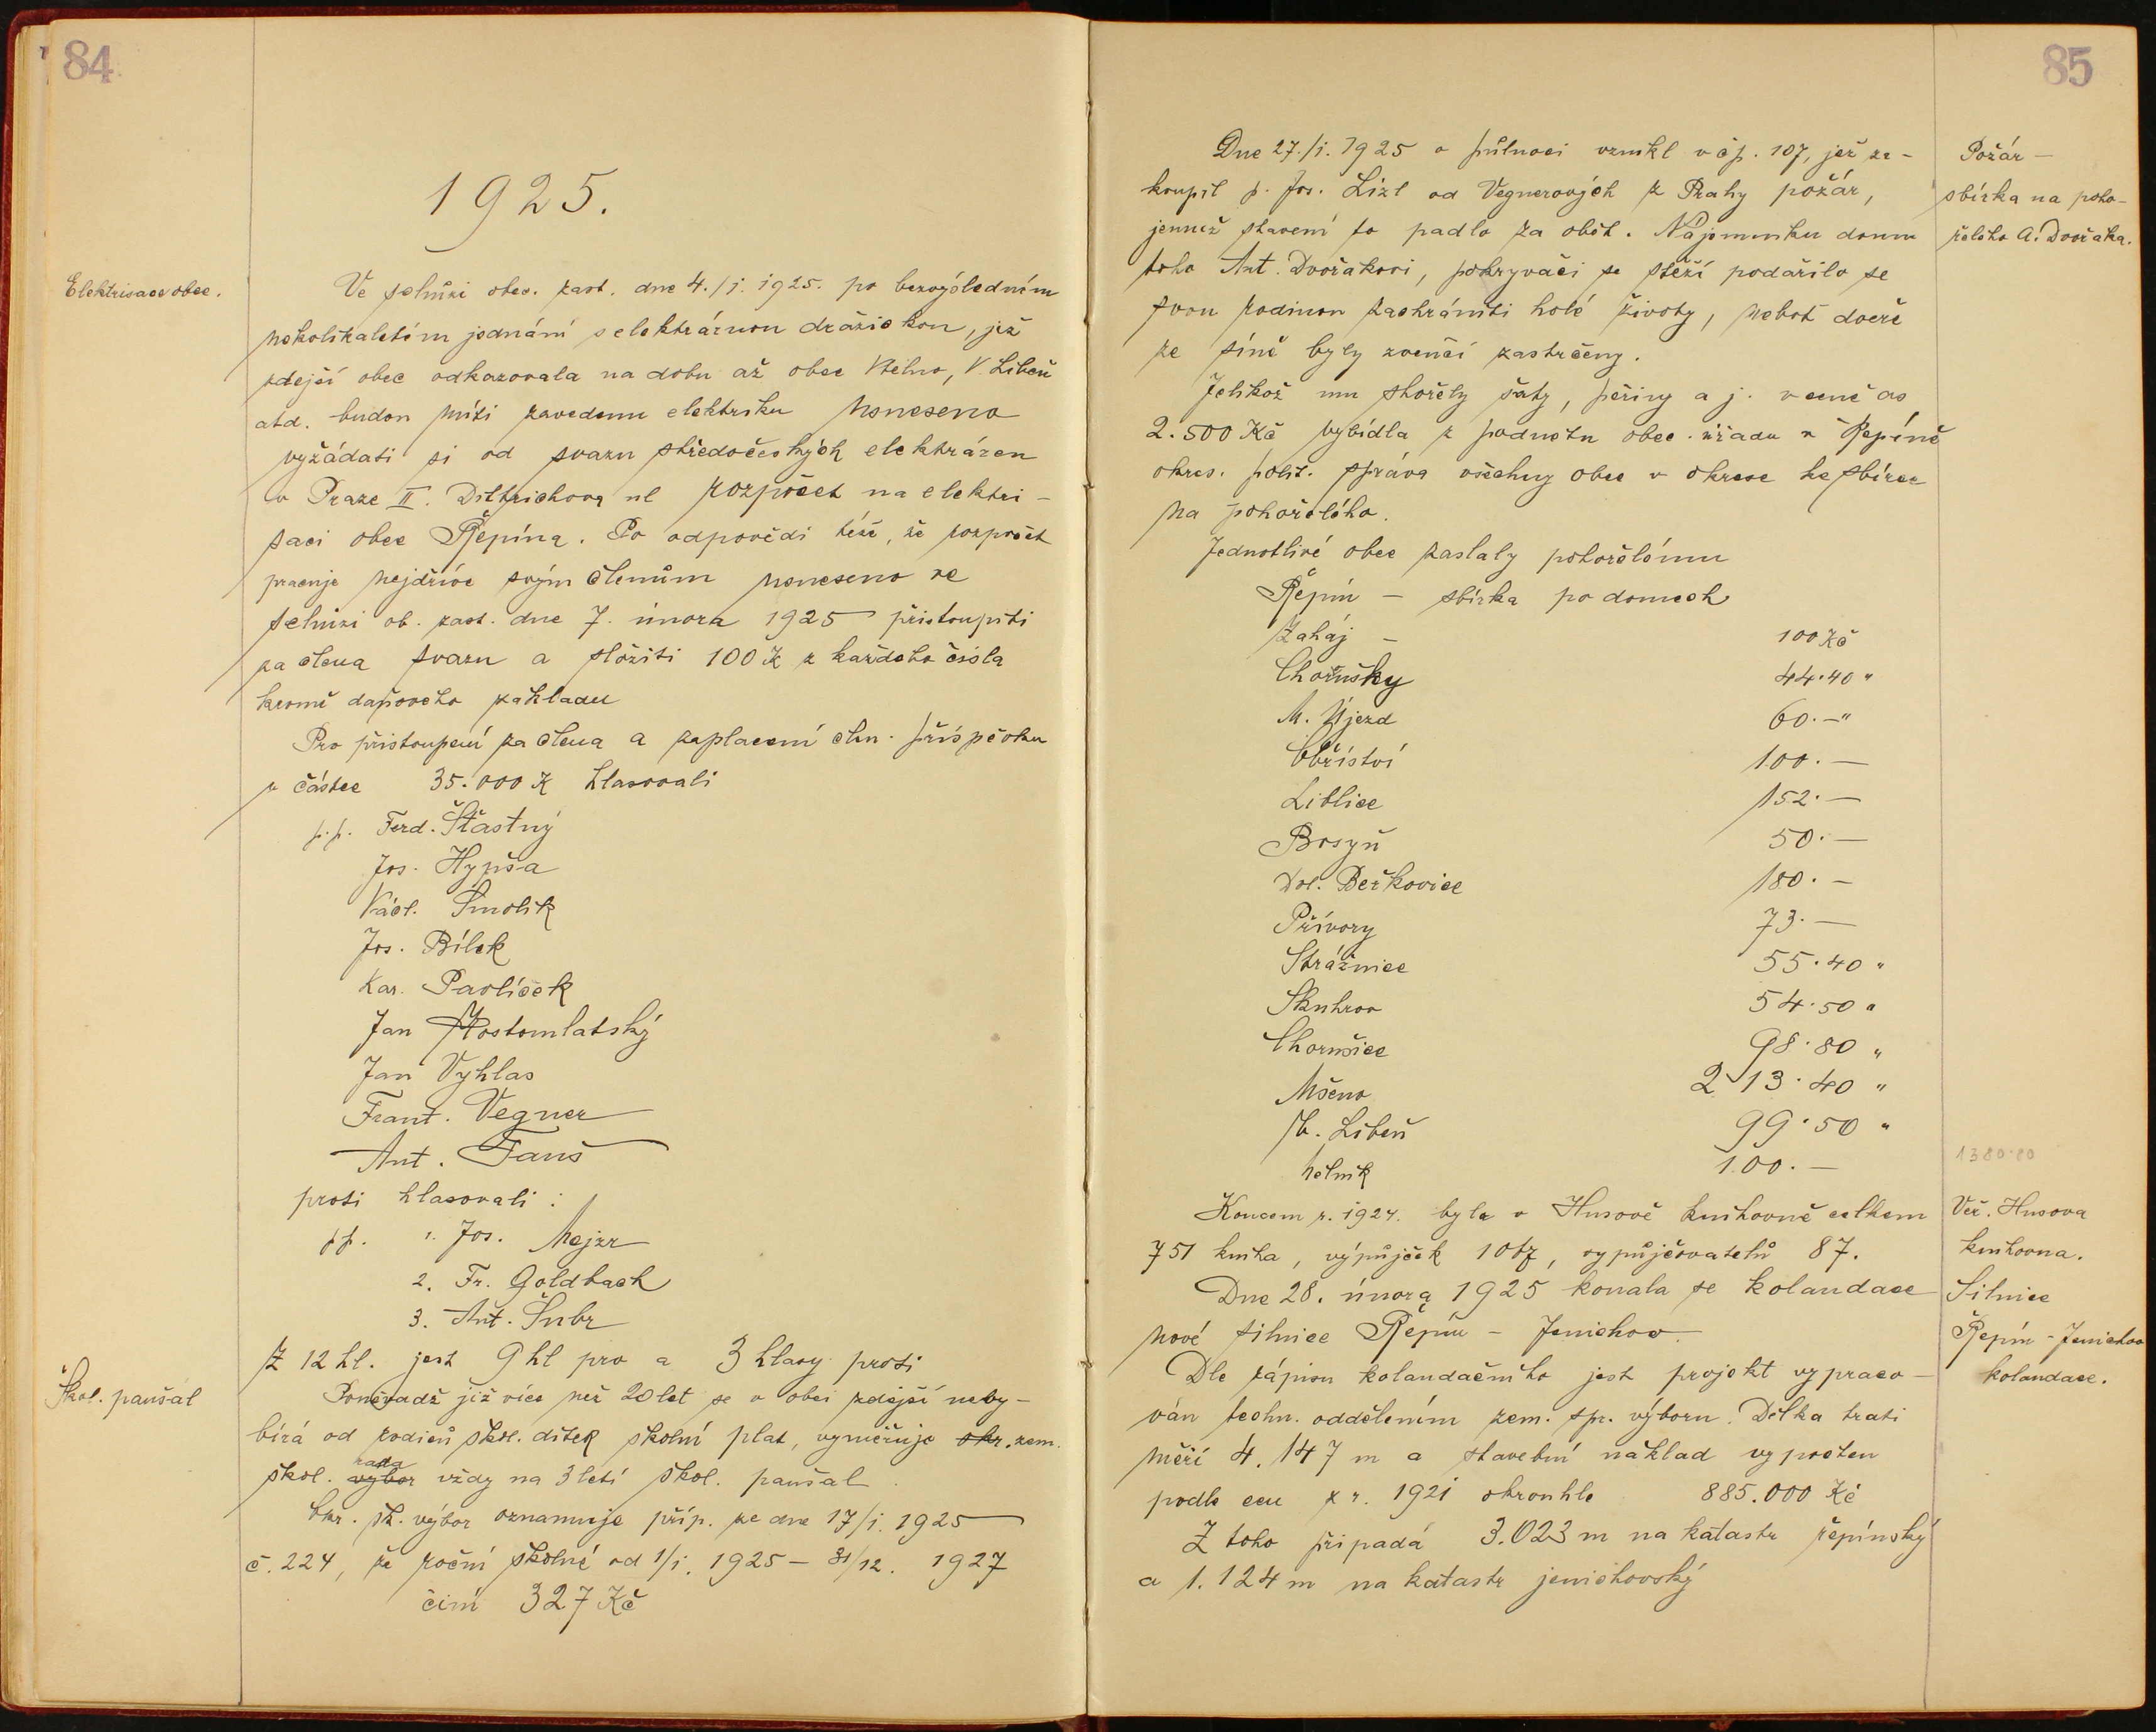 84
1925.
Elektrisace obce.
Ve schůzi obec. zast. dne 4./i. 1925. po bezvýsledném
několikaletém jednání s elektrárnou dražickou, jež
zdejší obec odkazovala na dobu až obce Vtelno, V. Libeň
atd. budou míti zavedenu elektriku usneseno
vyžádati si od svazu středočeských elektráren
v Praze II. Dittrichova ul rozpočet na elektri-
saci obce Řepína. Po odpovědi téže, že rozpočet
pracuje nejdříve svým členům usneseno ve
schůzi ob. zast. dne 7. února 1925 přistoupiti
za člena svazu a složiti 100 K z každého čísla
kromě daňového základu
Pro přistoupení za člena a zaplacení čln. příspěvku
v částce 35.000 K hlasovali
p.p. Ferd. Šťastný
Jos. Hypša
Václ. Šmolík
Jos. Bílek
Kar. Pavlíček
Jan Hostomlatský
Jan Vyhlas
Frant. Vegner
Ant. Fanš
proti hlasovali :
pp. 1. Jos. Mejzr
2. Fr. Goldbach
3. Ant. Šubr
Z 12 hl. jest 9 hl pro a 3 hlasy proti
Škol. paušál
Poněvadž již více než 20 let se v obci zdejší nevy-
bírá od rodičů škol. dítek školní plat, vyměřuje okr. zem.
rada
škol. výbor vždy na 3 letí škol. paušal.
Okr. šk. výbor oznamuje příp. ze dne 17/i. 1925
č. 224, že roční školné od 1/i. 1925 – 31/12. 1927
činí 327 Kč
85
Dne 27./i. 1925 o půlnoci vznikl v čp. 107, jež za-
koupil p. Jos. Lizl od Vegnerových z Prahy požár,
jemuž stavení to padlo za oběť. Nájemníku domu
toho Ant. Dvořákovi, pokryvači se stěží podařilo se
svou rodinou zachrániti holé životy, neboť dveře
ze síně byly zvenčí zastrčeny.
Požár –
sbírka na poho-
řelého A. Dvořáka.
Jelikož mu shořely šaty, peřiny a j. v ceně as
2.500 Kč vybídla z podnětu obec. úřadu v Řepíně
okres. polit. správa všechny obce v okrese ke sbírce
na pohořelého.
Jednotlivé obce zaslaly pohořelému
Řepín – sbírka po domech
Zaháj – 100 Kč
Chorušky 44.40 "
M. Újezd 60.– "
Obříství 100.–
Liblice 152.–
Bosyň 50.–
Dol. Beřkovice 180.–
Přívory 73.–
Strážnice 55.40 "
Skuhrov 54.50 "
Chorušice 98.80 "
Mšeno 213.40 "
V. Libeň 99.50 "
Mělník 100.–
1380.80
Koncem r. 1924. byla v Husově knihovně celkem
751 kniha, výpůjček 1067, vypůjčovatelů 87.
Veř. Husova
knihovna.
Dne 28. února 1925 konala se kolaudace
nové silnice Řepín – Jenichov.
Silnice
Řepín – Jenichov
kolaudace.
Dle zápisu kolaudačního jest projekt vypraco-
ván techn. oddělením zem. spr. výboru. Délka trati
měří 4.147 m a stavební náklad vypočten
podle cen z r. 1921 okrouhle 885.000 Kč
Z toho připadá 3.023 m na katastr řepínský
a 1.124 m na katastr jenichovský